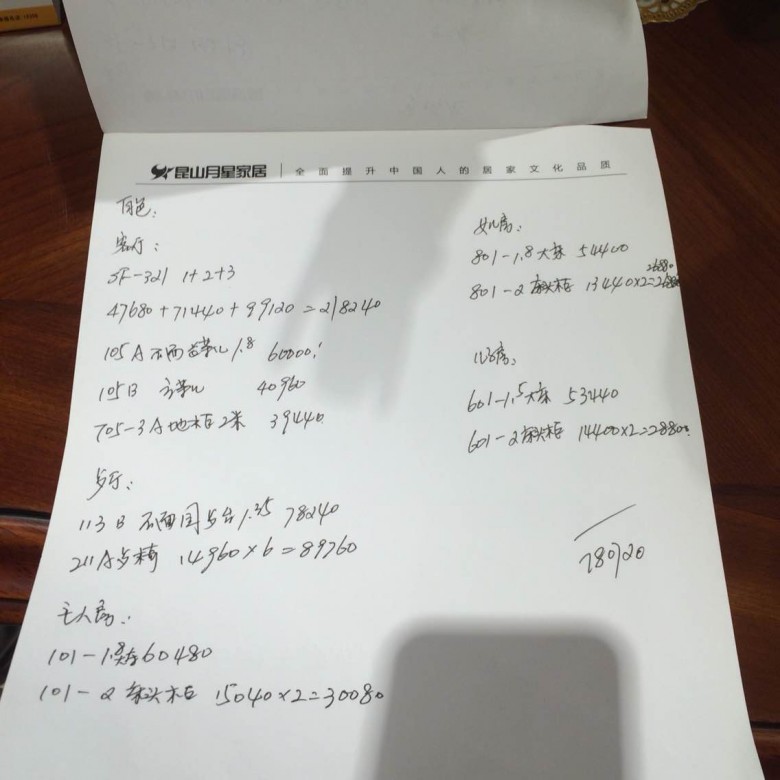 昆山月星家居 | 全面提升中国人的居家文化品质
白色:
客厅:
SF-321 1+2+3
47680+71440+99120=218240
105A 石面 1.8 60000
105B 方茶几 40960
705-3A地柜2米 39440
歺厅:
113B 石面园歺台1.35 78240
211A歺椅 14960×6=89760
主人房:
101-1.8 60480
101-2 床头柜 15040×2=30080
女儿房:
801-1.8大床 54400
801-2 床头柜 13440×2=26880
26880
儿子房:
601-1.5大床 53440
601-2 床头柜 14400×2=28800
780720